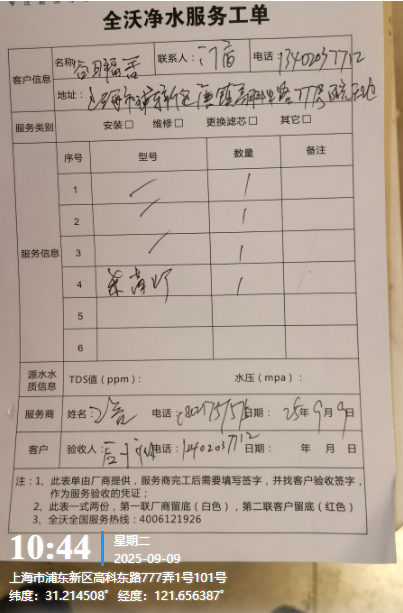 全沃净水服务工单
客户信息
名称: 联系人: 门店 电话: 13402037712
地址: 上海市浦东新区唐镇高科东路777弄
服务类别 安装□ 维修□ 更换滤芯□ 其它□
服务信息
序号 型号 数量 备注
1 / 1
2 / 1
3 / 1
4 杀菌灯 1
5
6
源水水质信息 TDS值（ppm）: 水压（mpa）:
服务商 姓名: 电话: 日期: 25年9月9日
客户 验收人: 电话: 13402037712 日期: 年 月 日
注：1、此表单由厂商提供，服务商完工后需要填写签字，并找客户验收签字，
作为服务验收的凭证；
2、此表一式两份，第一联厂商留底（白色），第二联客户留底（红色）
3、全沃全国服务热线：4006121926
10:44 星期二
2025-09-09
上海市浦东新区高科东路777弄1号101号
纬度: 31.214508° 经度: 121.656387°